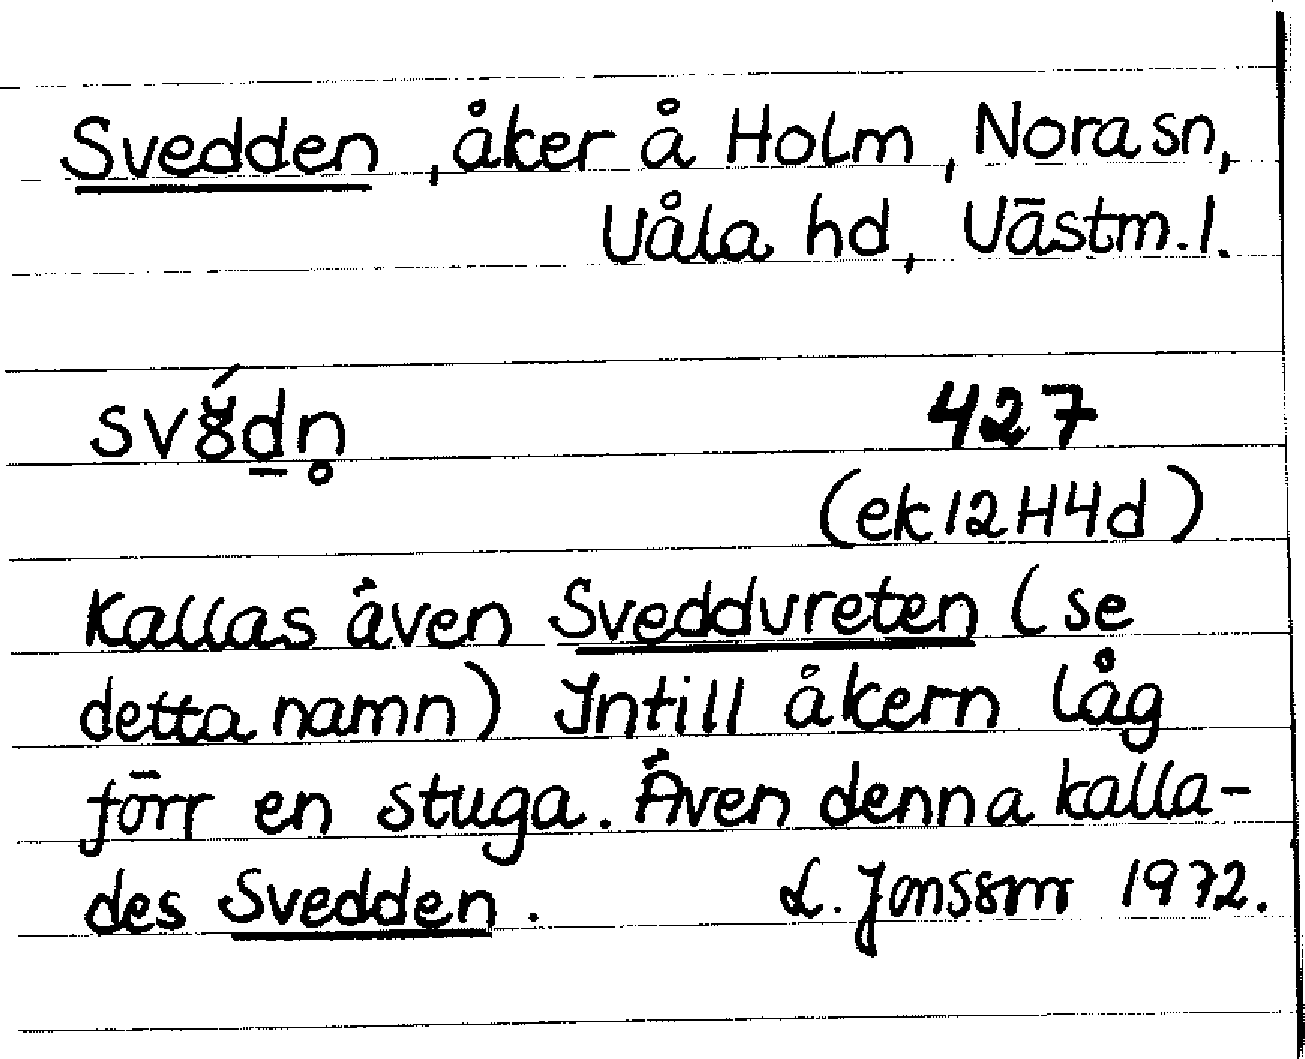 Svedden, åker å Holm, Nora sn,
Våla hd, Västm. l.
427
(ek 12H4d)
Kallas även Sveddvreten (se
detta namn) Intill åkern låg
förr en stuga. Även denna kalla-
des Svedden. L. Jonsson 1972.